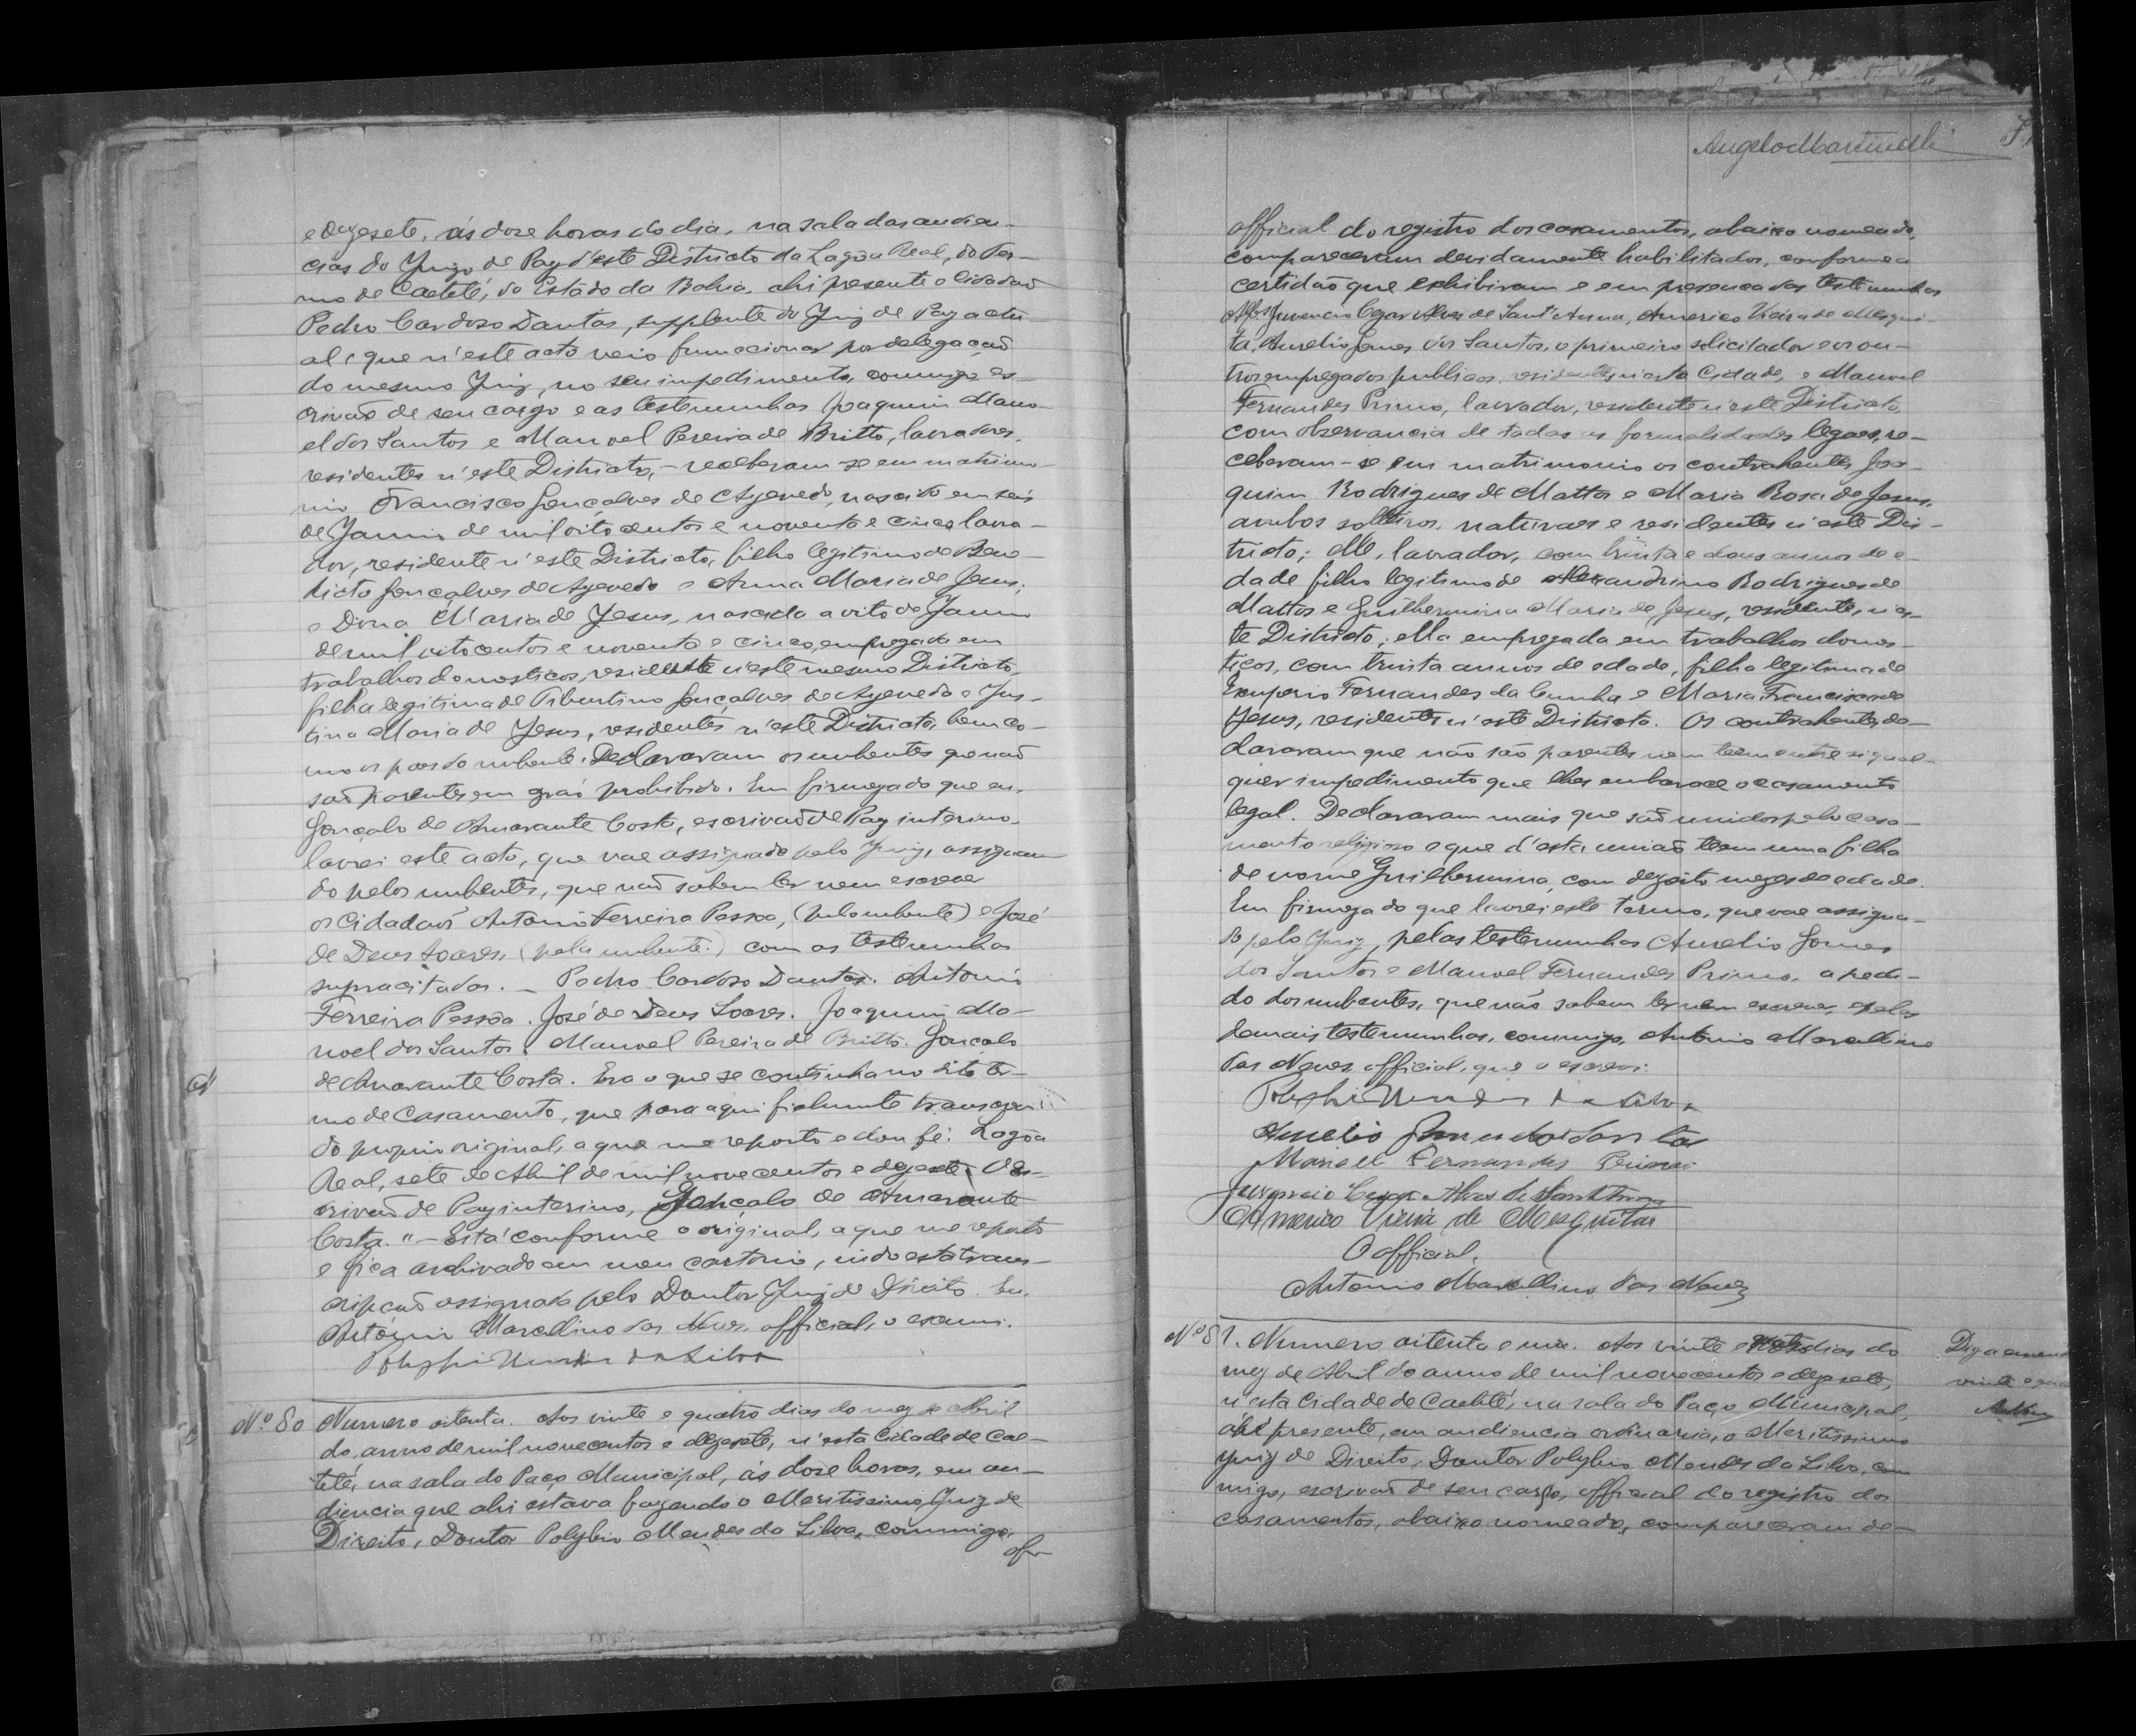 e dezesete, ás doze horas do dia, na sala das audien-
cias do Juizo de Paz d'este Districto da Lagôa Real, do Ter-
mo de Caeteté, do Estado da Bahia, ahi presente o Cidadão
Pedro Cardoso Dantas, supplente do Juiz de Paz actu-
al, que n'este acto veio funccionar por delegação
do mesmo Juiz, no seu impedimento, commigo es-
crivão de seu cargo e as testemunhas Joaquim Mano-
el dos Santos e Manoel Pereira de Britto, lavradores,
residentes n'este Districto, - receberam-se em matrimo-
nio Francisco Gonçalves de Azevedo, nascido em seis
de Janeiro de mil oito centos e noventa e cinco, lavra-
dor, residente n'este Districto, filho legitimo de Bene-
dicto Gonçalves de Azevedo e Anna Maria de Jesus,
e Dona Maria de Jesus, nascida a oito de
de mil oito centos e noventa e cinco, empregada em
trabalhos domesticos, residente n'este mesmo Districto,
filha legitima de Tiburtino Gonçalves de Azevedo e Jus-
tina Maria de Jesus, residentes n'este Districto, bem co-
mo os paes do nubente. Declararam os nubentes que não
são parentes em gráo prohibido. Em firmeza do que eu,
Gonçalo de Amarante Costa, escrivão de Paz interino,
lavrei este acto, que vae assignado pelo Juiz, assignan-
do pelos nubentes, que não sabem ler nem escrever
os Cidadãos Antonio Ferreira Pessoa, (pelo nubente) e José
de Deus Soares, (pela nubente.) com as testemunhas
supracitadas. - Pedro Cardoso Dantas. Antonio
Ferreira Pessôa. José de Deus Soares. Joaquim Ma-
noel dos Santos. Manoel Pereira de Britto. Gonçalo
de Amarante Costa. Era o que se continha no dito ter-
mo de casamento, que para aqui fielmente transcrevi
do proprio original, a que me reporto e dou fé. Lagôa
Real, sete de Abril de mil novecentos e dezesete. O es-
crivão de Paz interino, Gonçalo de Amarante
Costa." - Está conforme o original, a que me reporto
e fica archivado em meu cartorio, indo esta trans-
cripção assignada pelo Doutor Juiz de Direito. Eu,
Antonio Marcellino das Neves, official, o escrevi.
Polybio Mendes da Silva
Nº 80 Numero oitenta. Aos vinte e quatro dias do mez de Abril
do anno de mil novecentos e dezesete, n'esta Cidade de Cae-
teté, na sala do Paço Municipal, ás doze horas, em au-
diencia que ahi estava fazendo o Meritissimo Juiz de
Direito, Doutor Polybio Mendes da Silva, commigo,
Angelo Martinelli
official do registro dos casamentos, abaixo nomeado,
compareceram devidamente habilitados, conforme a
certidão que exhibiram e em presença das testemunhas
Juvencio Cezar Alves de Sant'Anna, Americo Vieira de Mesqui-
ta, Aurelio Gomes dos Santos, o primeiro solicitador e os ou-
tros empregados publicos, residentes n'esta Cidade, e Manoel
Fernandes Primo, lavrador, residente n'este Districto,
com observancia de todas as formalidades legaes, re-
ceberam-se em matrimonio os contrahentes Joa-
quim Rodrigues de Mattos e Maria Rosa de Jesus,
ambos solteiros, naturaes e residentes n'este Dis-
tricto; elle, lavrador, com trinta e dous annos de e-
dade, filho legitimo de Alexandrino Rodrigues de
Mattos e Guilhermina Maria de Jesus, residentes n'es-
te Districto; ella empregada em trabalhos domes-
ticos, com trinta annos de edade, filha legitima de
Exuperio Fernandes da Cunha e Maria Francisca de
Jesus, residentes n'este Districto. Os contrahentes de-
clararam que não são parentes nem teem entre si qual-
quer impedimento que lhes embarace o casamento
legal. Declararam mais que são unidos pelo casa-
mento religioso e que d'esta união teem uma filha
de nome Guilhermina, com dezoito mezes de edade.
Em firmeza do que lavrei este termo, que vae assigna-
do pelo Juiz, pelas testemunhas Aurelio Gomes
dos Santos e Manoel Fernandes Primo, a pedi-
do dos nubentes, que não sabem ler nem escrever, e pelas
demais testemunhas, commigo, Antonio Marcellino
das Neves, official, que o escrevi.
Polybio Mendes da Silva
Aurelio Gomes dos Santos
Manoel Fernandes Primo
Juvencio Cezar Alves de Sant'Anna
Americo Vieira de Mesquita
O official,
Antonio Marcellino das Neves
Nº 81. Numero oitenta e um. Aos vinte e quatro dias do
mez de Abril do anno de mil novecentos e dezesete,
n'esta Cidade de Caeteté, na sala do Paço Municipal,
ahi presente, em audiencia ordinaria, o Meritissimo
Juiz de Direito, Doutor Polybio Mendes da Silva, com-
migo, escrivão de seu cargo, official do registro dos
casamentos, abaixo nomeado, compareceram de-
Diga
vinte e